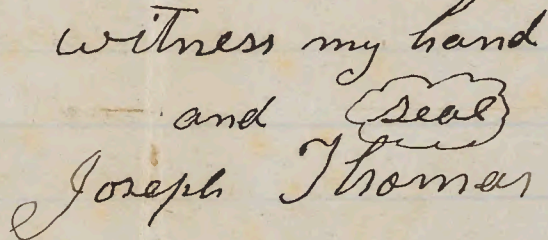 witness my hand
and seal
Joseph Thomas